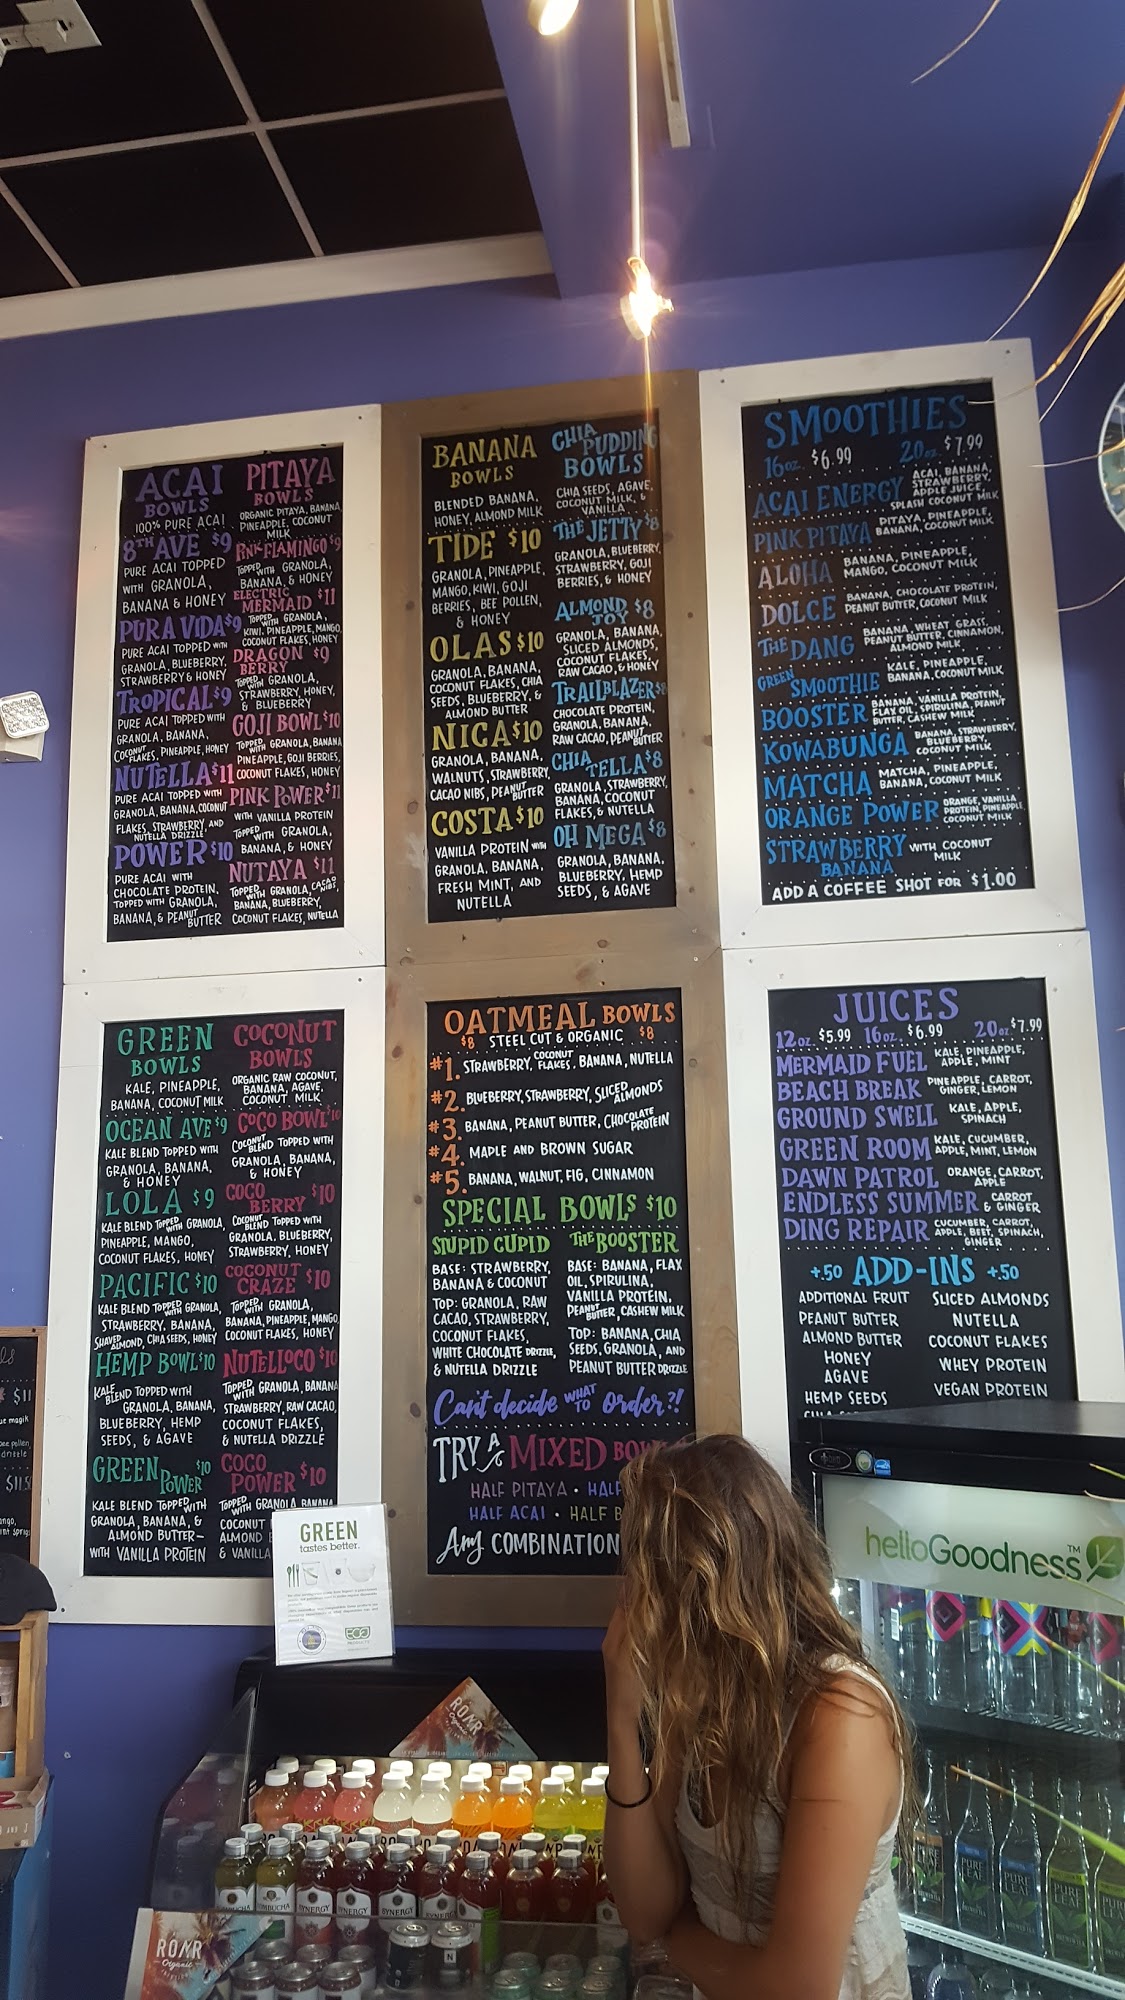 ACAI
BOWLS
100% PURE ACAI
8TH AVE $9
PURE ACAI TOPPED
WITH GRANOLA,
BANANA & HONEY
PURA VIDA $9
PURE ACAI TOPPED WITH
GRANOLA, BLUEBERRY,
STRAWBERRY & HONEY
TROPICAL $9
PURE ACAI TOPPED WITH
GRANOLA, BANANA,
COCONUT FLAKES, PINEAPPLE, HONEY
NUTELLA $11
PURE ACAI TOPPED WITH
GRANOLA, BANANA, COCONUT
FLAKES, STRAWBERRY, AND
NUTELLA DRIZZLE
POWER $10
PURE ACAI WITH
CHOCOLATE PROTEIN,
TOPPED WITH GRANOLA,
BANANA, & PEANUT BUTTER
PITAYA
BOWLS
ORGANIC PITAYA, BANANA,
PINEAPPLE, COCONUT
MILK
PINK FLAMINGO $9
TOPPED WITH GRANOLA,
BANANA, & HONEY
ELECTRIC
MERMAID $11
TOPPED WITH GRANOLA,
KIWI, PINEAPPLE, MANGO,
COCONUT FLAKES, HONEY
DRAGON $9
BERRY
TOPPED WITH GRANOLA,
STRAWBERRY, HONEY,
& BLUEBERRY
GOJI BOWL $10
TOPPED WITH GRANOLA, BANANA
PINEAPPLE, GOJI BERRIES,
COCONUT FLAKES, HONEY
PINK POWER $11
WITH VANILLA PROTEIN
TOPPED WITH GRANOLA,
BANANA, & HONEY
NUTAYA $11
TOPPED WITH GRANOLA, CACAO NIBS,
BANANA, BLUEBERRY,
COCONUT FLAKES, NUTELLA
BANANA
BOWLS
BLENDED BANANA,
HONEY, ALMOND MILK
TIDE $10
GRANOLA, PINEAPPLE,
MANGO, KIWI, GOJI
BERRIES, BEE POLLEN,
& HONEY
OLAS $10
GRANOLA, BANANA,
COCONUT FLAKES, CHIA
SEEDS, BLUEBERRY, &
ALMOND BUTTER
NICA $10
GRANOLA, BANANA,
WALNUTS, STRAWBERRY,
CACAO NIBS, PEANUT BUTTER
COSTA $10
VANILLA PROTEIN WITH
GRANOLA, BANANA,
FRESH MINT, AND
NUTELLA
CHIA
PUDDING
BOWLS
CHIA SEEDS, AGAVE,
COCONUT MILK, &
VANILLA
THE JETTY $8
GRANOLA, BLUEBERRY,
STRAWBERRY, GOJI
BERRIES, & HONEY
ALMOND $8
JOY
GRANOLA, BANANA,
SLICED ALMONDS,
COCONUT FLAKES,
RAW CACAO, & HONEY
TRAILBLAZER $8
CHOCOLATE PROTEIN,
GRANOLA, BANANA,
RAW CACAO, PEANUT BUTTER
CHIA
TELLA $8
GRANOLA, STRAWBERRY,
BANANA, COCONUT
FLAKES, & NUTELLA
OH MEGA $8
GRANOLA, BANANA,
BLUEBERRY, HEMP
SEEDS, & AGAVE
SMOOTHIES
16oz. $6.99 20oz. $7.99
ACAI ENERGY ACAI, BANANA,
STRAWBERRY,
APPLE JUICE,
SPLASH COCONUT MILK
PINK PITAYA PITAYA, PINEAPPLE,
BANANA, COCONUT MILK
ALOHA BANANA, PINEAPPLE,
MANGO, COCONUT MILK
DOLCE BANANA, CHOCOLATE PROTEIN,
PEANUT BUTTER, COCONUT MILK
THE DANG BANANA, WHEAT GRASS,
PEANUT BUTTER, CINNAMON,
ALMOND MILK
GREEN SMOOTHIE KALE, PINEAPPLE,
BANANA, COCONUT MILK
BOOSTER BANANA, VANILLA PROTEIN,
FLAX OIL, SPIRULINA, PEANUT
BUTTER, CASHEW MILK
KOWABUNGA BANANA, STRAWBERRY,
BLUEBERRY,
COCONUT MILK
MATCHA MATCHA, PINEAPPLE,
BANANA, COCONUT MILK
ORANGE POWER ORANGE, VANILLA
PROTEIN, PINEAPPLE,
COCONUT MILK
STRAWBERRY WITH COCONUT
BANANA MILK
ADD A COFFEE SHOT FOR $1.00
GREEN
BOWLS
KALE, PINEAPPLE,
BANANA, COCONUT MILK
OCEAN AVE $9
KALE BLEND TOPPED WITH
GRANOLA, BANANA,
& HONEY
LOLA $9
KALE BLEND TOPPED WITH GRANOLA,
PINEAPPLE, MANGO,
COCONUT FLAKES, HONEY
PACIFIC $10
KALE BLEND TOPPED WITH GRANOLA,
STRAWBERRY, BANANA,
SHAVED ALMOND, CHIA SEEDS, HONEY
HEMP BOWL $10
KALE BLEND TOPPED WITH
GRANOLA, BANANA,
BLUEBERRY, HEMP
SEEDS, & AGAVE
GREEN POWER $10
KALE BLEND TOPPED WITH
GRANOLA, BANANA, &
ALMOND BUTTER—
WITH VANILLA PROTEIN
COCONUT
BOWLS
ORGANIC RAW COCONUT,
BANANA, AGAVE,
COCONUT MILK
COCO BOWL $10
COCONUT BLEND TOPPED WITH
GRANOLA, BANANA,
& HONEY
COCO
BERRY $10
COCONUT BLEND TOPPED WITH
GRANOLA, BLUEBERRY,
STRAWBERRY, HONEY
COCONUT
CRAZE $10
TOPPED WITH GRANOLA,
BANANA, PINEAPPLE, MANGO
COCONUT FLAKES, HONEY
NUTELLOCO $10
TOPPED WITH GRANOLA, BANANA
STRAWBERRY, RAW CACAO,
COCONUT FLAKES,
& NUTELLA DRIZZLE
COCO
POWER $10
TOPPED WITH GRANOLA, BANANA
COCONUT
ALMOND
& VANILLA
OATMEAL BOWLS
$8 STEEL CUT & ORGANIC $8
#1. STRAWBERRY, COCONUT FLAKES, BANANA, NUTELLA
#2. BLUEBERRY, STRAWBERRY, SLICED ALMONDS
#3. BANANA, PEANUT BUTTER, CHOCOLATE PROTEIN
#4. MAPLE AND BROWN SUGAR
#5. BANANA, WALNUT, FIG, CINNAMON
SPECIAL BOWLS $10
STUPID CUPID
BASE: STRAWBERRY,
BANANA & COCONUT
TOP: GRANOLA, RAW
CACAO, STRAWBERRY,
COCONUT FLAKES,
WHITE CHOCOLATE DRIZZLE,
& NUTELLA DRIZZLE
THE BOOSTER
BASE: BANANA, FLAX
OIL, SPIRULINA,
VANILLA PROTEIN,
PEANUT BUTTER, CASHEW MILK
TOP: BANANA, CHIA
SEEDS, GRANOLA, AND
PEANUT BUTTER DRIZZLE
Can't decide WHAT TO order?!
TRY A MIXED BOWL
HALF PITAYA • HALF
HALF ACAI • HALF B
Any COMBINATION
JUICES
12oz. $5.99 16oz. $6.99 20oz. $7.99
MERMAID FUEL KALE, PINEAPPLE,
APPLE, MINT
BEACH BREAK PINEAPPLE, CARROT,
GINGER, LEMON
GROUND SWELL KALE, APPLE,
SPINACH
GREEN ROOM KALE, CUCUMBER,
APPLE, MINT, LEMON
DAWN PATROL ORANGE, CARROT,
APPLE
ENDLESS SUMMER CARROT
& GINGER
DING REPAIR CUCUMBER, CARROT,
APPLE, BEET, SPINACH,
GINGER
+.50 ADD-INS +.50
ADDITIONAL FRUIT
PEANUT BUTTER
ALMOND BUTTER
HONEY
AGAVE
HEMP SEEDS
SLICED ALMONDS
NUTELLA
COCONUT FLAKES
WHEY PROTEIN
VEGAN PROTEIN
$11
$11.50
helloGoodness™
GREEN
tastes better.
ECO
PRODUCTS
ROAR
Organic
SYNERGY
SYNERGY
SYNERGY
ROAR
Organic
PURE
LEAF
PURE
LEAF